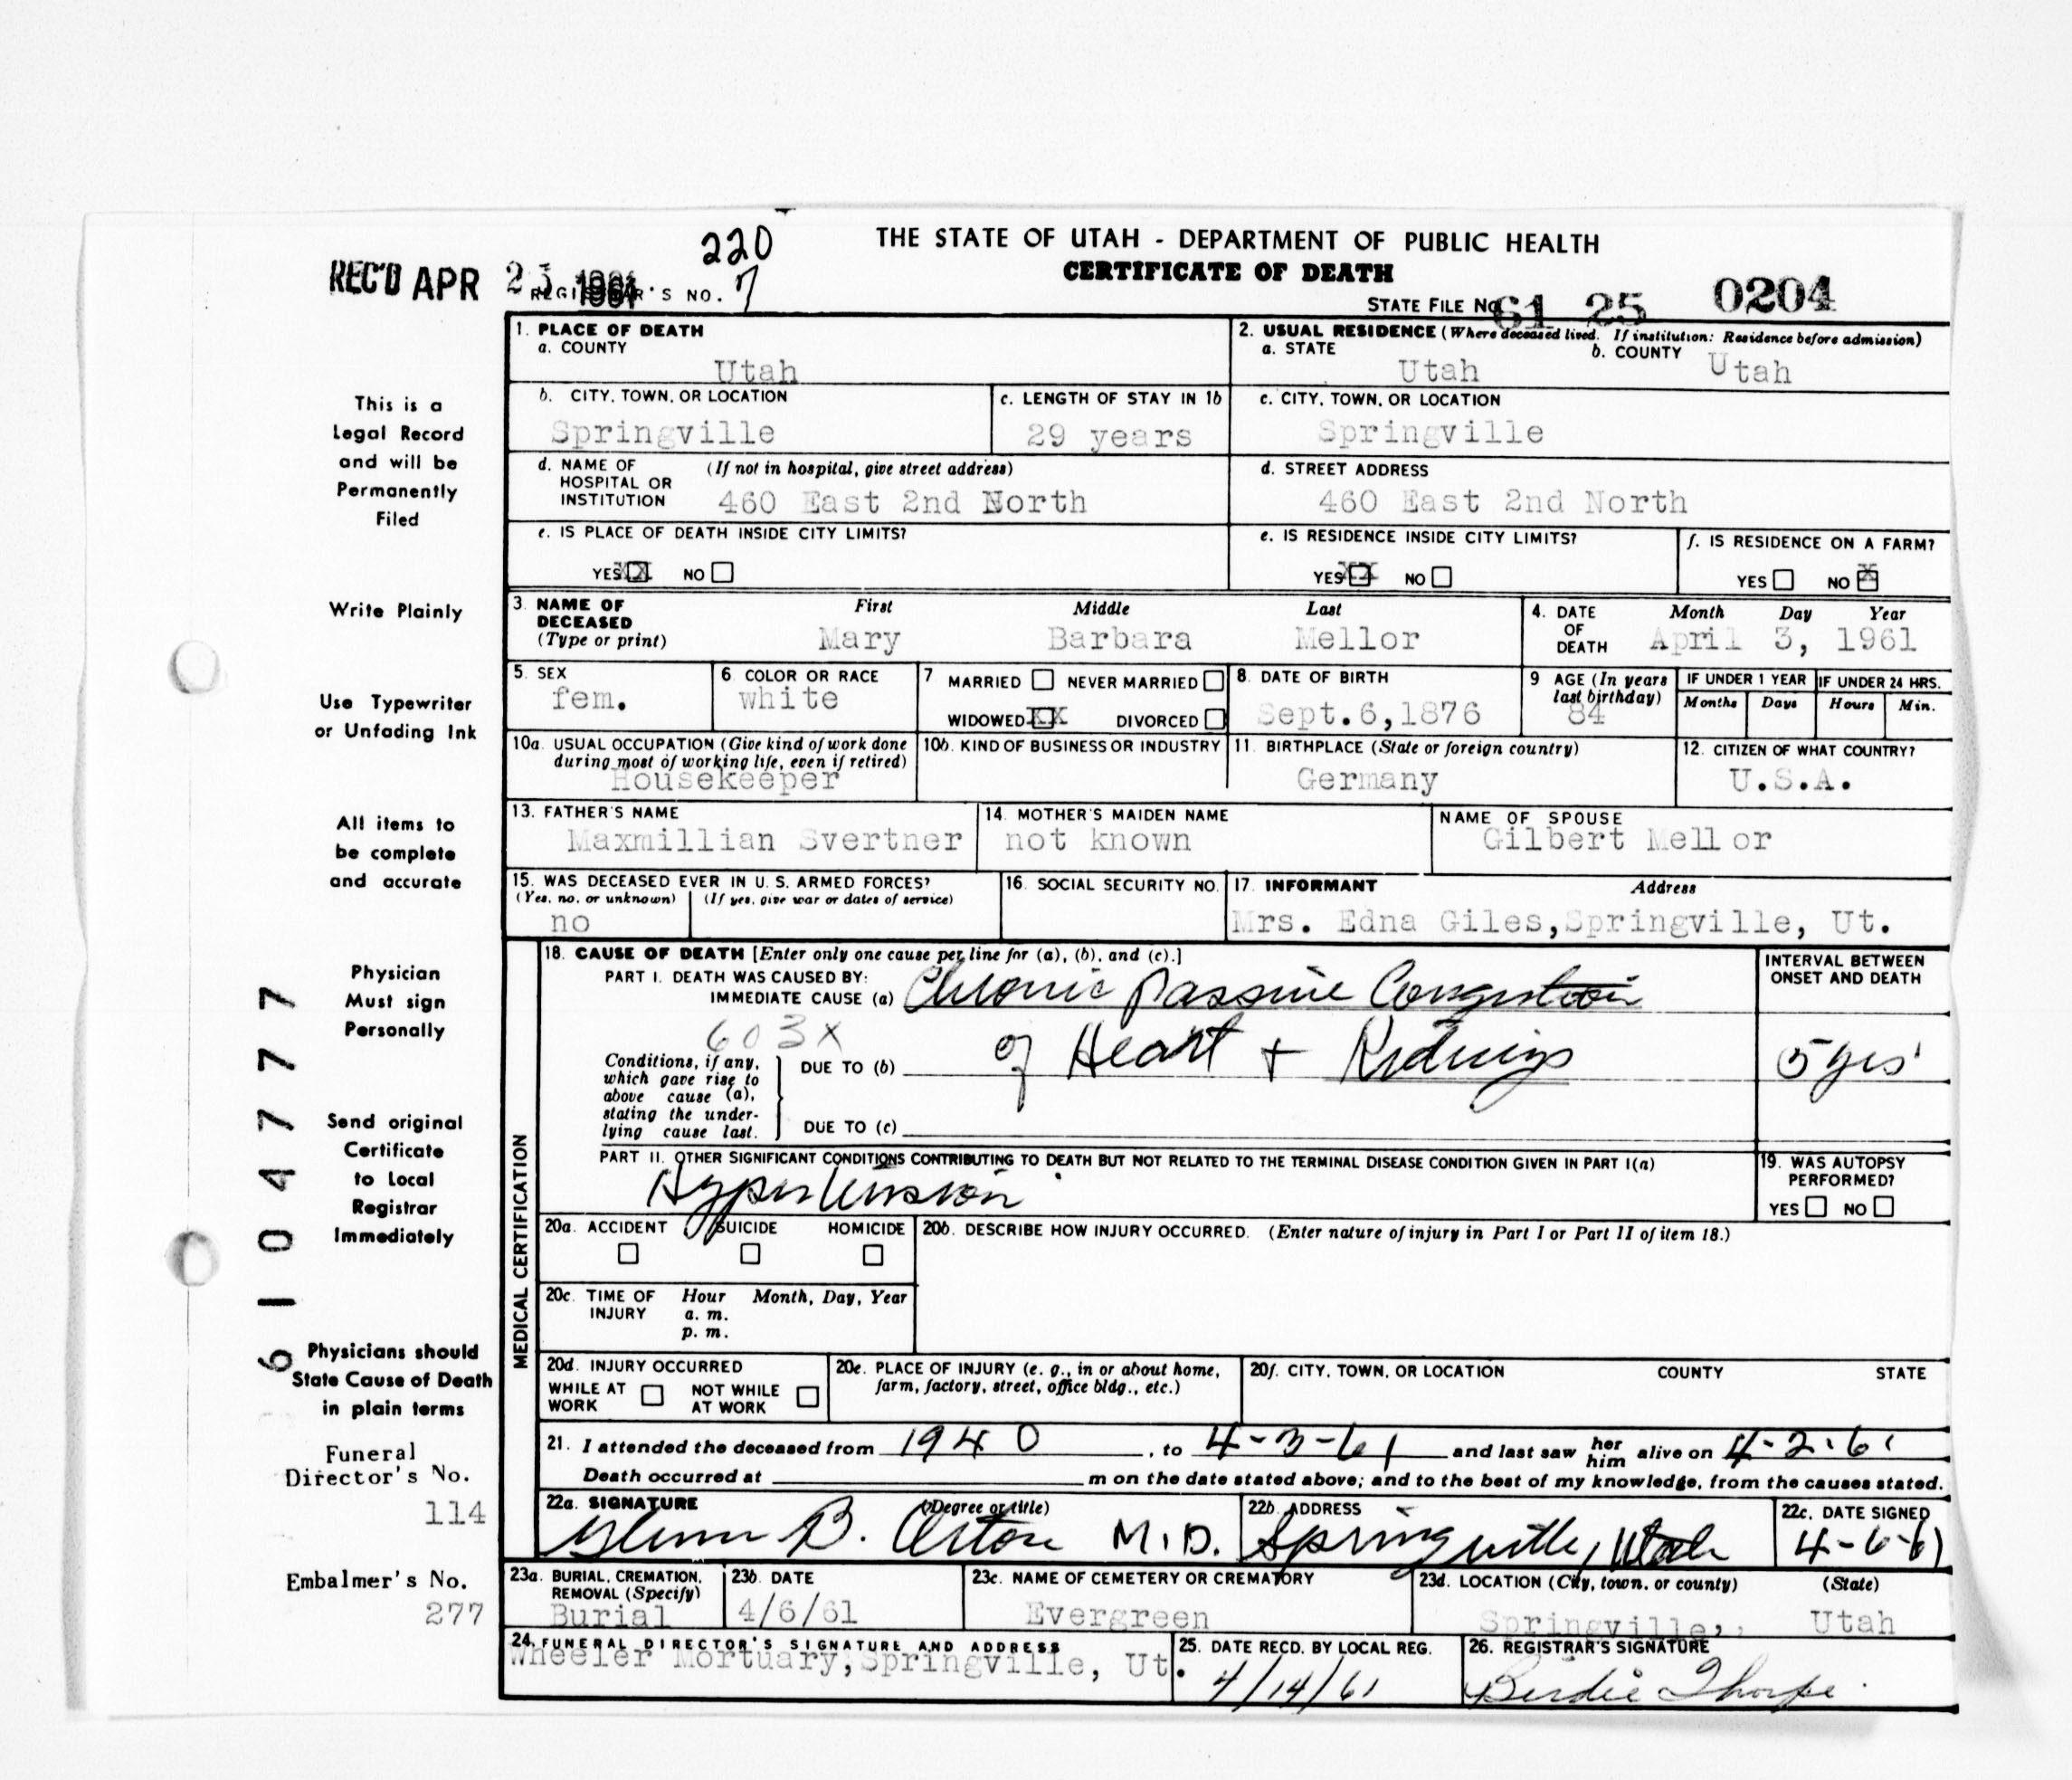 220
THE STATE OF UTAH - DEPARTMENT OF PUBLIC HEALTH
CERTIFICATE OF DEATH
REC'D APR 25 1961
REGISTRAR'S NO. 7
STATE FILE No. 61 25 0204
1. PLACE OF DEATH
a. COUNTY
Utah
2. USUAL RESIDENCE (Where deceased lived. If institution: Residence before admission)
a. STATE
Utah
b. COUNTY
Utah
b. CITY, TOWN, OR LOCATION
Springville
c. LENGTH OF STAY IN 1b
29 years
c. CITY, TOWN, OR LOCATION
Springville
d. NAME OF HOSPITAL OR INSTITUTION
(If not in hospital, give street address)
460 East 2nd North
d. STREET ADDRESS
460 East 2nd North
e. IS PLACE OF DEATH INSIDE CITY LIMITS?
YES XX NO
e. IS RESIDENCE INSIDE CITY LIMITS?
YES XX NO
f. IS RESIDENCE ON A FARM?
YES NO X
3. NAME OF DECEASED
(Type or print)
First Middle Last
Mary Barbara Mellor
4. DATE OF DEATH
Month Day Year
April 3, 1961
5. SEX
fem.
6. COLOR OR RACE
white
7. MARRIED NEVER MARRIED
WIDOWED XX DIVORCED
8. DATE OF BIRTH
Sept.6,1876
9. AGE (In years last birthday)
84
IF UNDER 1 YEAR
Months Days
IF UNDER 24 HRS.
Hours Min.
10a. USUAL OCCUPATION (Give kind of work done during most of working life, even if retired)
Housekeeper
10b. KIND OF BUSINESS OR INDUSTRY
11. BIRTHPLACE (State or foreign country)
Germany
12. CITIZEN OF WHAT COUNTRY?
U.S.A.
13. FATHER'S NAME
Maxmillian Svertner
14. MOTHER'S MAIDEN NAME
not known
NAME OF SPOUSE
Gilbert Mellor
15. WAS DECEASED EVER IN U. S. ARMED FORCES?
(Yes, no, or unknown) (If yes, give war or dates of service)
no
16. SOCIAL SECURITY NO.
17. INFORMANT Address
Mrs. Edna Giles, Springville, Ut.
MEDICAL CERTIFICATION
18. CAUSE OF DEATH [Enter only one cause per line for (a), (b), and (c).]
PART I. DEATH WAS CAUSED BY:
IMMEDIATE CAUSE (a) Chronic passive Congestion
603X
Conditions, if any, which gave rise to above cause (a), stating the underlying cause last.
DUE TO (b) of Heart + Kidneys
DUE TO (c)
INTERVAL BETWEEN ONSET AND DEATH
5 yrs
PART II. OTHER SIGNIFICANT CONDITIONS CONTRIBUTING TO DEATH BUT NOT RELATED TO THE TERMINAL DISEASE CONDITION GIVEN IN PART I(a)
Hypertension
19. WAS AUTOPSY PERFORMED?
YES NO
20a. ACCIDENT SUICIDE HOMICIDE
20b. DESCRIBE HOW INJURY OCCURRED. (Enter nature of injury in Part I or Part II of item 18.)
20c. TIME OF INJURY
Hour Month, Day, Year
a. m.
p. m.
20d. INJURY OCCURRED
WHILE AT WORK NOT WHILE AT WORK
20e. PLACE OF INJURY (e. g., in or about home, farm, factory, street, office bldg., etc.)
20f. CITY, TOWN, OR LOCATION COUNTY STATE
21. I attended the deceased from 1940, to 4-3-61 and last saw her him alive on 4-2-61
Death occurred at m on the date stated above; and to the best of my knowledge, from the causes stated.
22a. SIGNATURE (Degree or title)
Glenn B. Orton M.D.
22b. ADDRESS
Springville, Utah
22c. DATE SIGNED
4-6-61
23a. BURIAL, CREMATION, REMOVAL (Specify)
Burial
23b. DATE
4/6/61
23c. NAME OF CEMETERY OR CREMATORY
Evergreen
23d. LOCATION (City, town, or county) (State)
Springville,, Utah
24. FUNERAL DIRECTOR'S SIGNATURE AND ADDRESS
Wheeler Mortuary, Springville, Ut.
25. DATE RECD. BY LOCAL REG.
4/14/61
26. REGISTRAR'S SIGNATURE
Birdie Thorpe
This is a
Legal Record
and will be
Permanently
Filed
Write Plainly
Use Typewriter
or Unfading Ink
All items to
be complete
and accurate
Physician
Must sign
Personally
Send original
Certificate
to Local
Registrar
Immediately
Physicians should
State Cause of Death
in plain terms
Funeral
Director's No.
114
Embalmer's No.
277
6104777